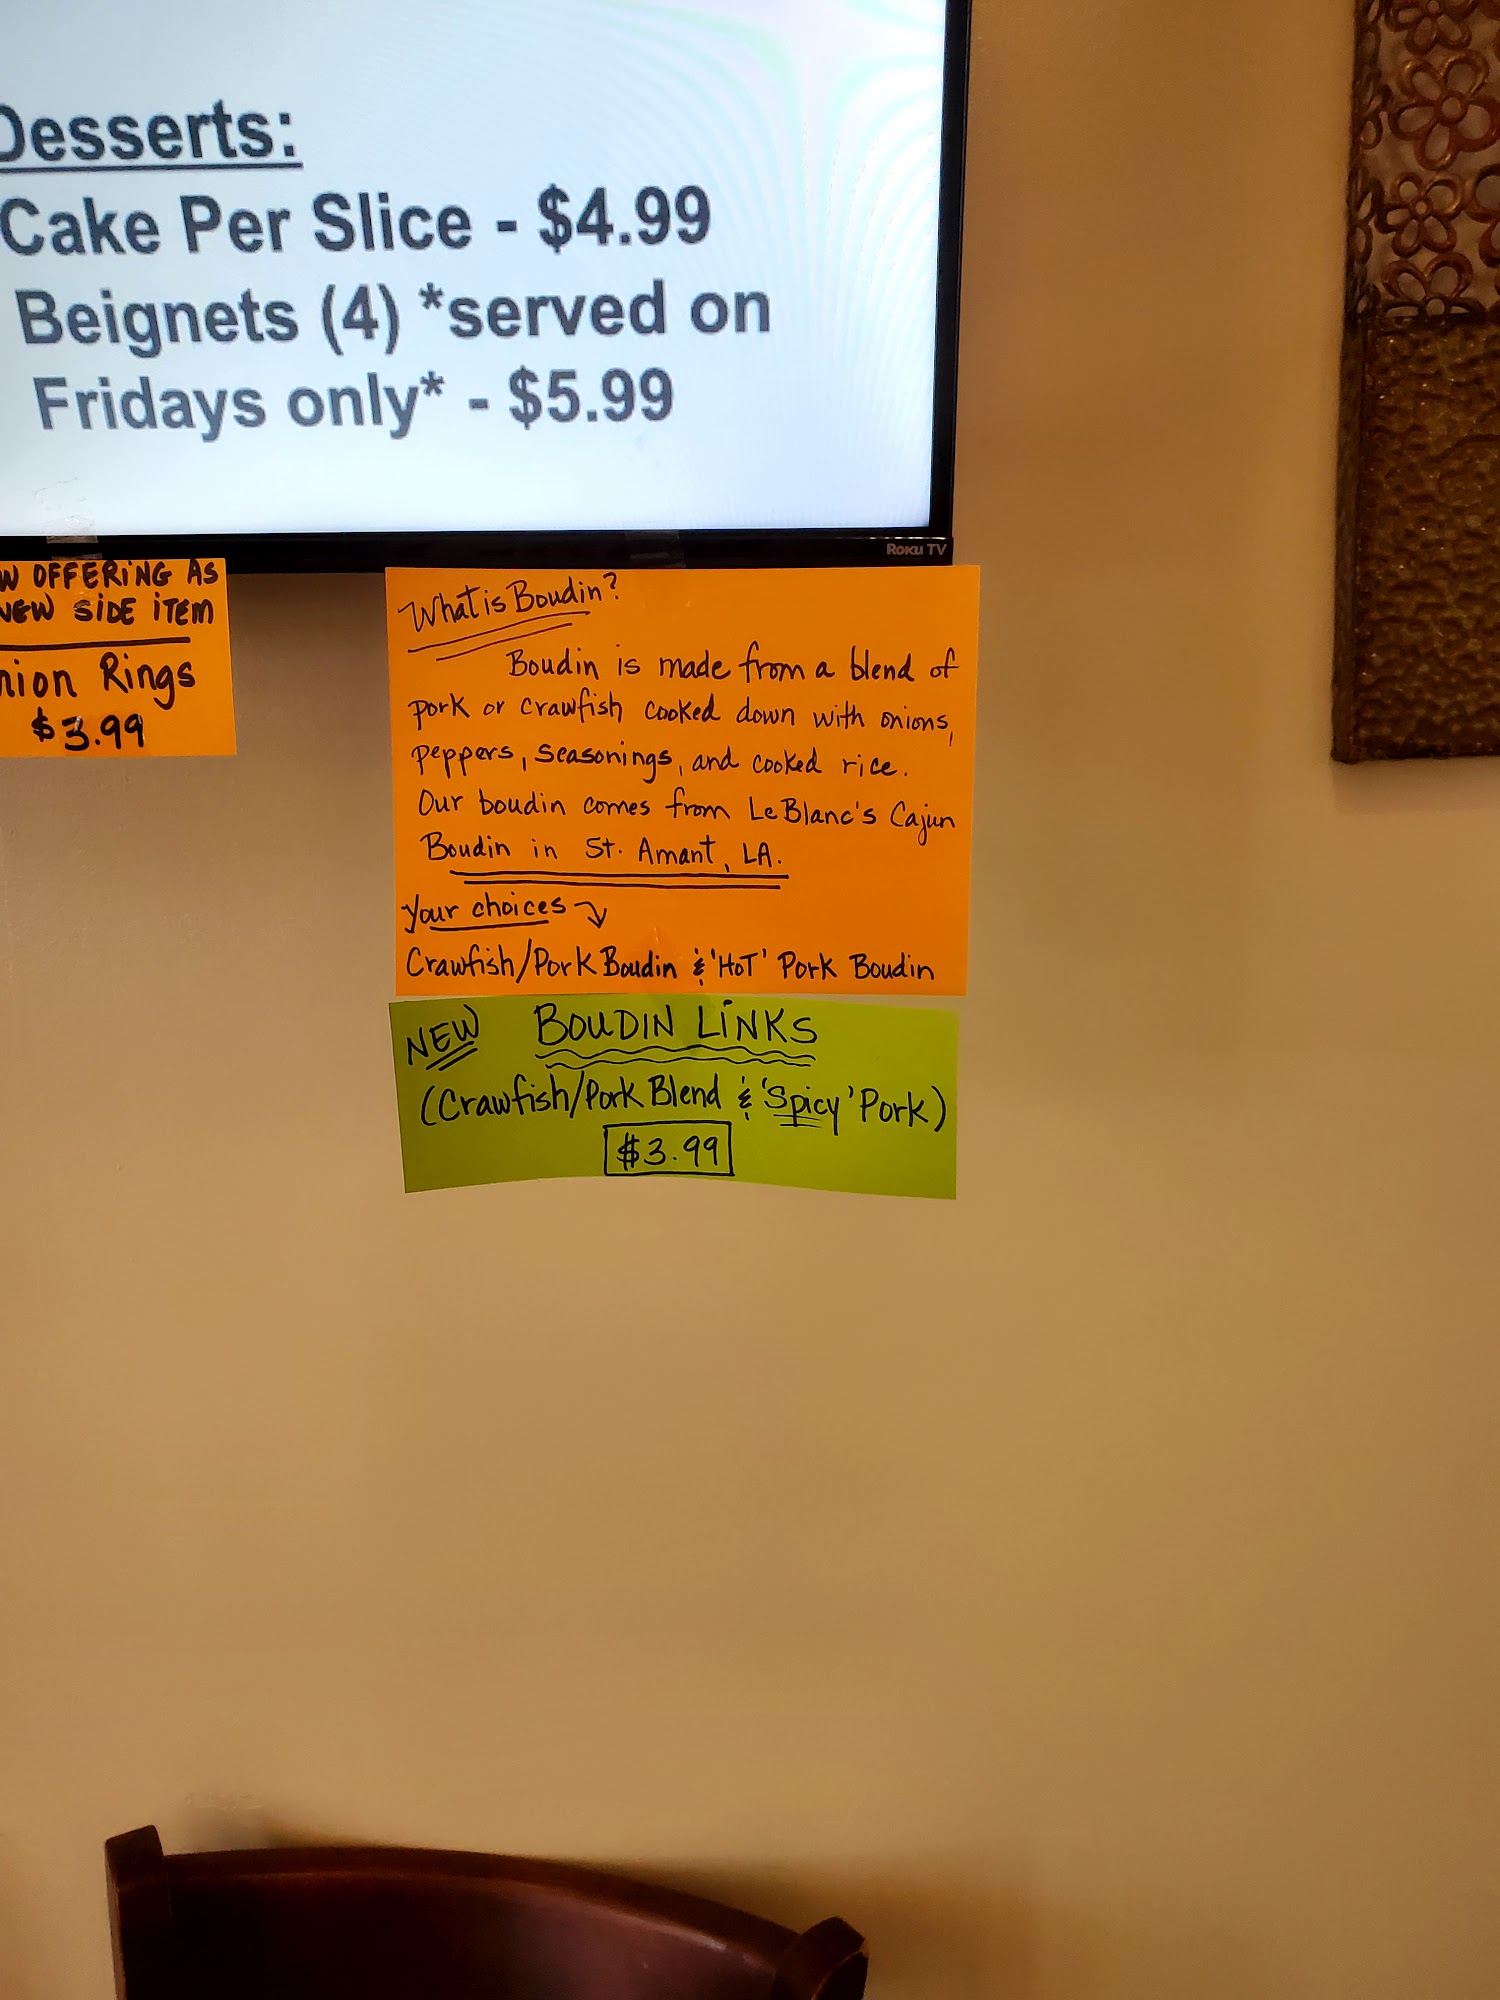 Desserts:
Cake Per Slice - $4.99
Beignets (4) *served on
Fridays only* - $5.99
Roku TV
OFFERING AS
NEW SIDE ITEM
Rings
$3.99
What is Boudin?
Boudin is made from a blend of
pork or crawfish cooked down with onions,
peppers, seasonings, and cooked rice.
Our boudin comes from LeBlanc's Cajun
Boudin in St. Amant, LA.
Your choices
Crawfish/Pork Boudin & 'HOT' Pork Boudin
NEW BOUDIN LINKS
(Crawfish/Pork Blend & 'Spicy' Pork)
$3.99